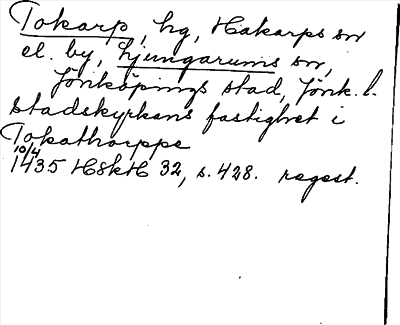 Tokarp, hg, Hakarps sn
el. by, Ljungarums sn,
Jönköpings stad, Jönk. l.
Stadskyrkans fastighet i
Tokathorppe
10/4
1435 HSkH 32, s. 428. regest.